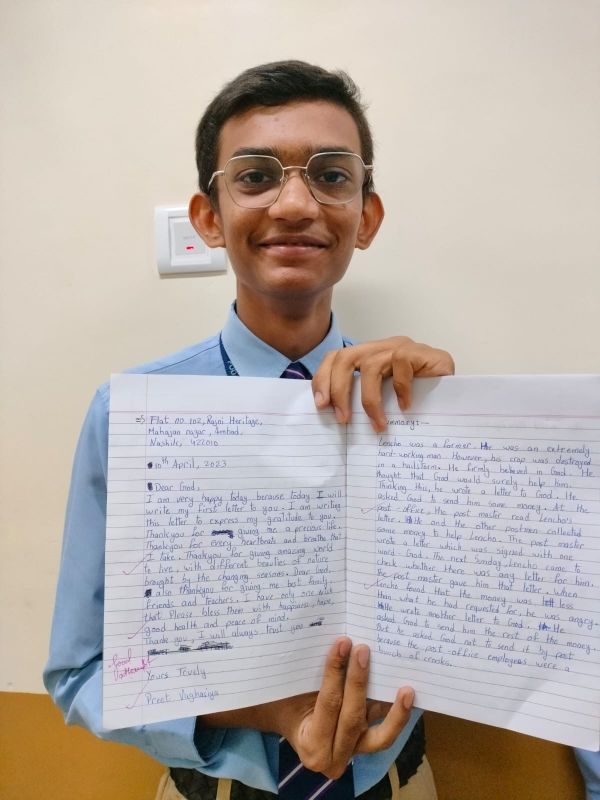 Flat no. 102, Rajni Heritage,
Mahajan nagar, Ambad,
Nashik, 422010
10th April, 2023
Dear God,
I am very happy today because today I will
write my first letter to you. I am writing
this letter to express my gratitude to you.
Thankyou for giving me a precious life.
Thankyou for every heartbeats and breaths that
I take. Thankyou for giving amazing world
to live, with different beauties of nature
brought by the changing seasons. Dear God,
also thankyou for giving me best family,
friends and teachers. I have only one wish
that Please bless them with happiness, hope,
good health and peace of mind.
Thank you, I will always trust you
Good
Yours lovely
Preet Vaghasiya
mmary:-
Lencho was a farmer. He was an extremely
hard-working man. However, his crop was destroyed
in a hailstorm. He firmly believed in God. He
thought that God would surely help him.
Thinking this, he wrote a letter to God. He
asked God to send him some money. At the
post-office, the post master read Lencho's
letter. He and the other postmen collected
some money to help Lencho. The post master
wrote a letter which was signed with one
word God. The next Sunday, Lencho came to
check whether there was any letter for him.
The post master gave him that letter. When
Lencho found that the money was less
than what he had requested for, he was angry.
He wrote another letter to God. He
asked God to send him the rest of the money.
But he asked God not to send it by post
because the post office employees were a
bunch of crooks.